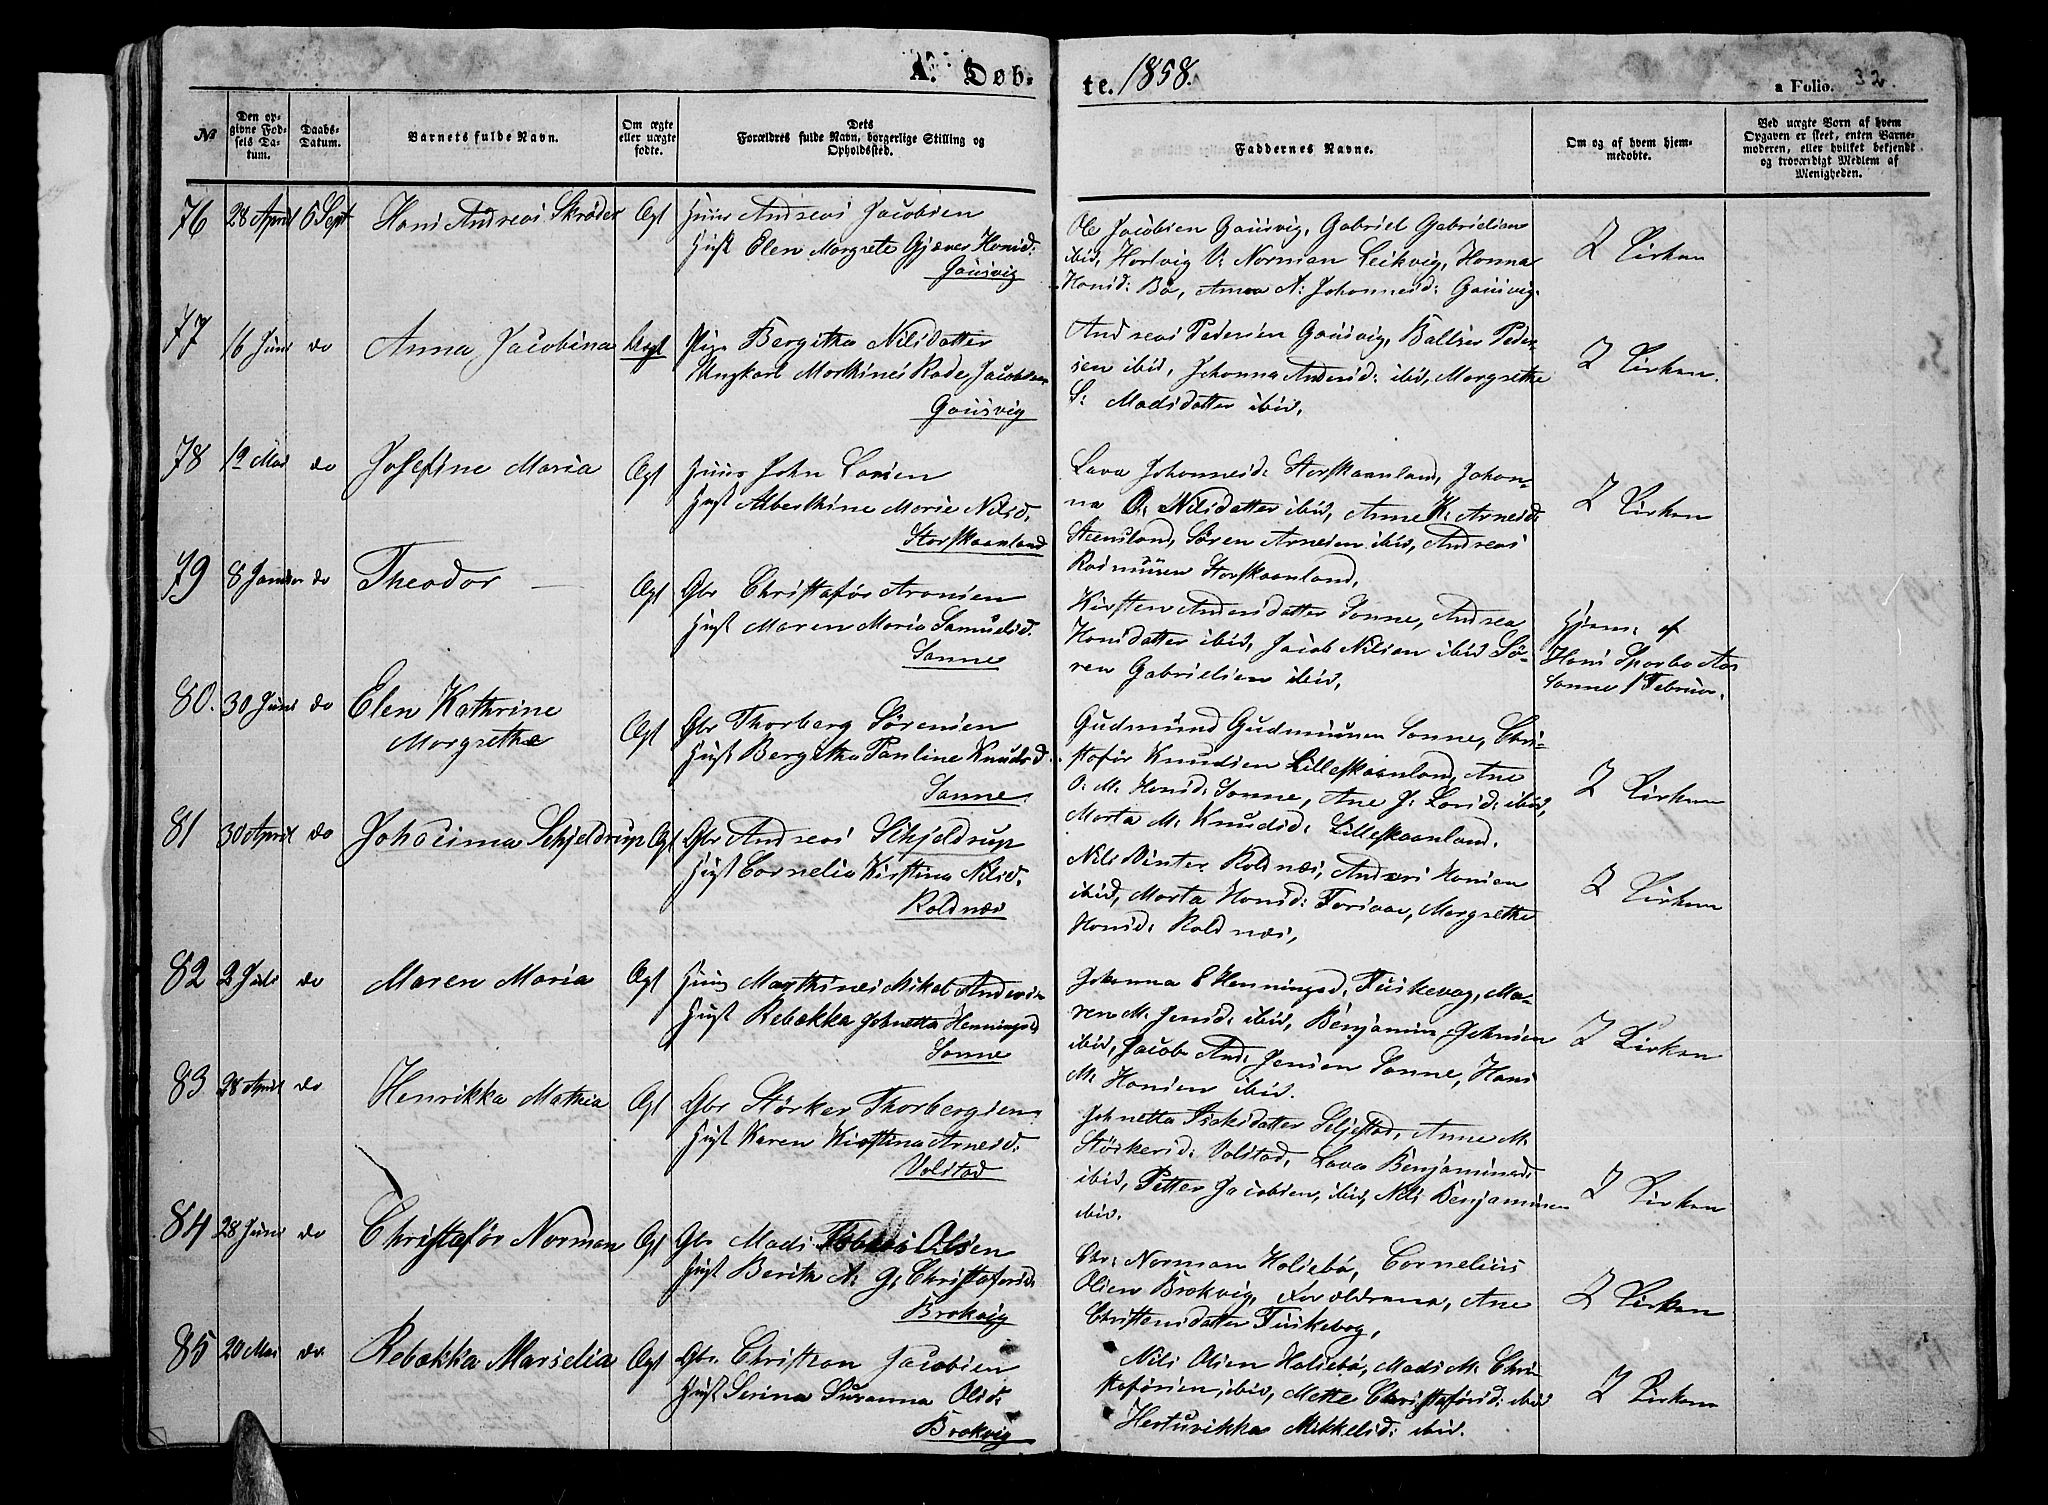 A. Døb-
te. 1858.
a Folio. 32.
№
Den op-
givne Fød-
sels Da-
tum.
Daabs-
Datum.
Barnets fulde Navn.
Om ægte
eller uægte
fødte.
Dets
Forældres fulde Navn, borgerlige Stilling og
Opholdssted.
Faddernes Navne.
Om og af hvem hjem-
medøbte.
Ved uægte Børn af hvem
Opgaven er skeet, enten Barne-
moderen, eller hvilket bekjendt
og troværdigt Medlem af
Menigheden.
76 28 April 5 Sept Hans Andreas Skrøder Ægt
Huus Andreas Jacobsen
Hust Elen Margrete Gjæver Hansd:
Gausvig
Ole Jacobsen Gausvig, Gabriel Gabrielsen
ibid, Hartvig U: Norman Leikvig, Hanna
Hansd: Bø, Anna A: Johannesd: Gausvig.
I Kirken
77 16 Juni do Anna Jacobina Uægt
Pige Bergitha Nilsdatter
Ungkarl Marthines Rade Jacobsen
Gausvig
Andreas Pedersen Gausvig, Baltser Peder-
sen ibid, Johanna Andersd: ibid, Margrethe
S: Madsdatter ibid,
I Kirken.
78 19 Mai do Josefine Maria Ægt
Huus John Larsen
Hust Alberthine Marie Nilsd.
Storskaanland
Lava Johannesd: Storskaanland, Johan-
na O: Nilsdatter ibid, Anne K: Arnesd:
Steensland, Søren Arnesen ibid, Andreas
Rasmussen Storskaanland,
I Kirken
79 8 Januar do Theodor —
Ægt Gbr Christafør Aronsen
Hust Maren Maria Samuelsd.
Sanne
Kirsten Andersdatter Sanne, Andrea
Hansdatter ibid, Jacob Nilsen ibid Sø-
ren Gabrielsen ibid,
Hjem: af
Hans
Sanne 1 Februar.
80. 30 Juni do Elen Kathrine
Margrethe
Ægt Gbr Thorberg Sørensen
Hust Bergitha Pauline Knudsd.
Sanne.
Gudmund Gudmunsen Sanne, Chri-
stafør Knudsen Lilleskaanland, Ane
O. M. Hansd: Sanne, Ane J: Larsd: ibid,
Marta M: Knudsd: Lilleskaanland.
I Kirken
81 30 April do Johacima Schjeldrup Ægt
Gbr Andreas Schjeldrup
Hust Cornelia Kirstina Nilsd.
Roldnæs
Nils Winter Roldnæs, Anders Hansen
ibid, Marta Hansd: Forsaae, Margrethe
Hansd: Roldnæs,
I Kirken
82 2 Juli do Maren Maria Ægt
Huus Marthines Mikal Anders:
Hust Rebækka Johnetta Henningsd
Sanne
Johanna E Henningsd, Fuskevag, Ma-
ren M: Jensd: ibid, Benjamin Johnsen
ibid, Jacob And: Jensen Sanne, Hans
M: Hansen ibid.
I Kirken
83 28 April do Henrikka Mathea Ægt
Gbr Størker Thorbergsen
Hust Karen Kirstina Arnesd.
Volstad
Johnetta Isaksdatter Seljestad, Anne M:
Størkersd: Volstad, Lava Benjaminsd:
ibid, Petter Jacobsen, ibid, Nils Benjaminsen
ibid.
I Kirken
84 28 Juni do Christafør Norman Ægt
Gbr Mads Tobias Olsen
Hust Berith A: G: Christafersd.
Brokvig
Chr: Norman Halsebø, Cornelius
Olsen Brokvig, Forældrene, Ane
Christensdatter Fuskevog,
I Kirken
85 20 Mai do Rebækka Marselia Ægt
Gbr. Christian Jacobsen
Hust Serina Susanna Olsd:
Brokvig
Nils Olsen Halsebø, Mads M: Chri-
stafersen, ibid, Mette Christafersd: ibid
Hertuvikka Mikkelsd: ibid.
I Kirken